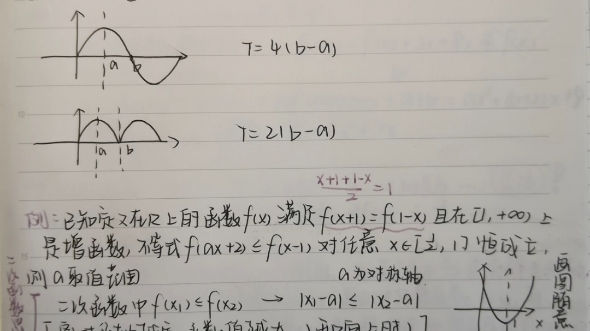 a b
T=4(b-a)
a b
T=2(b-a)
x+1+1-x/2=1
例：已知定义在R上的函数f(x)满足f(x+1)=f(1-x)且在[1,+∞)上
是增函数,不等式f(ax+2)≤f(x-1)对任意x∈[½,1]恒成立,
则a取值范围
a为对称轴
二次函数中f(x₁)≤f(x₂) → |x₁-a|≤|x₂-a|
x
画图随意